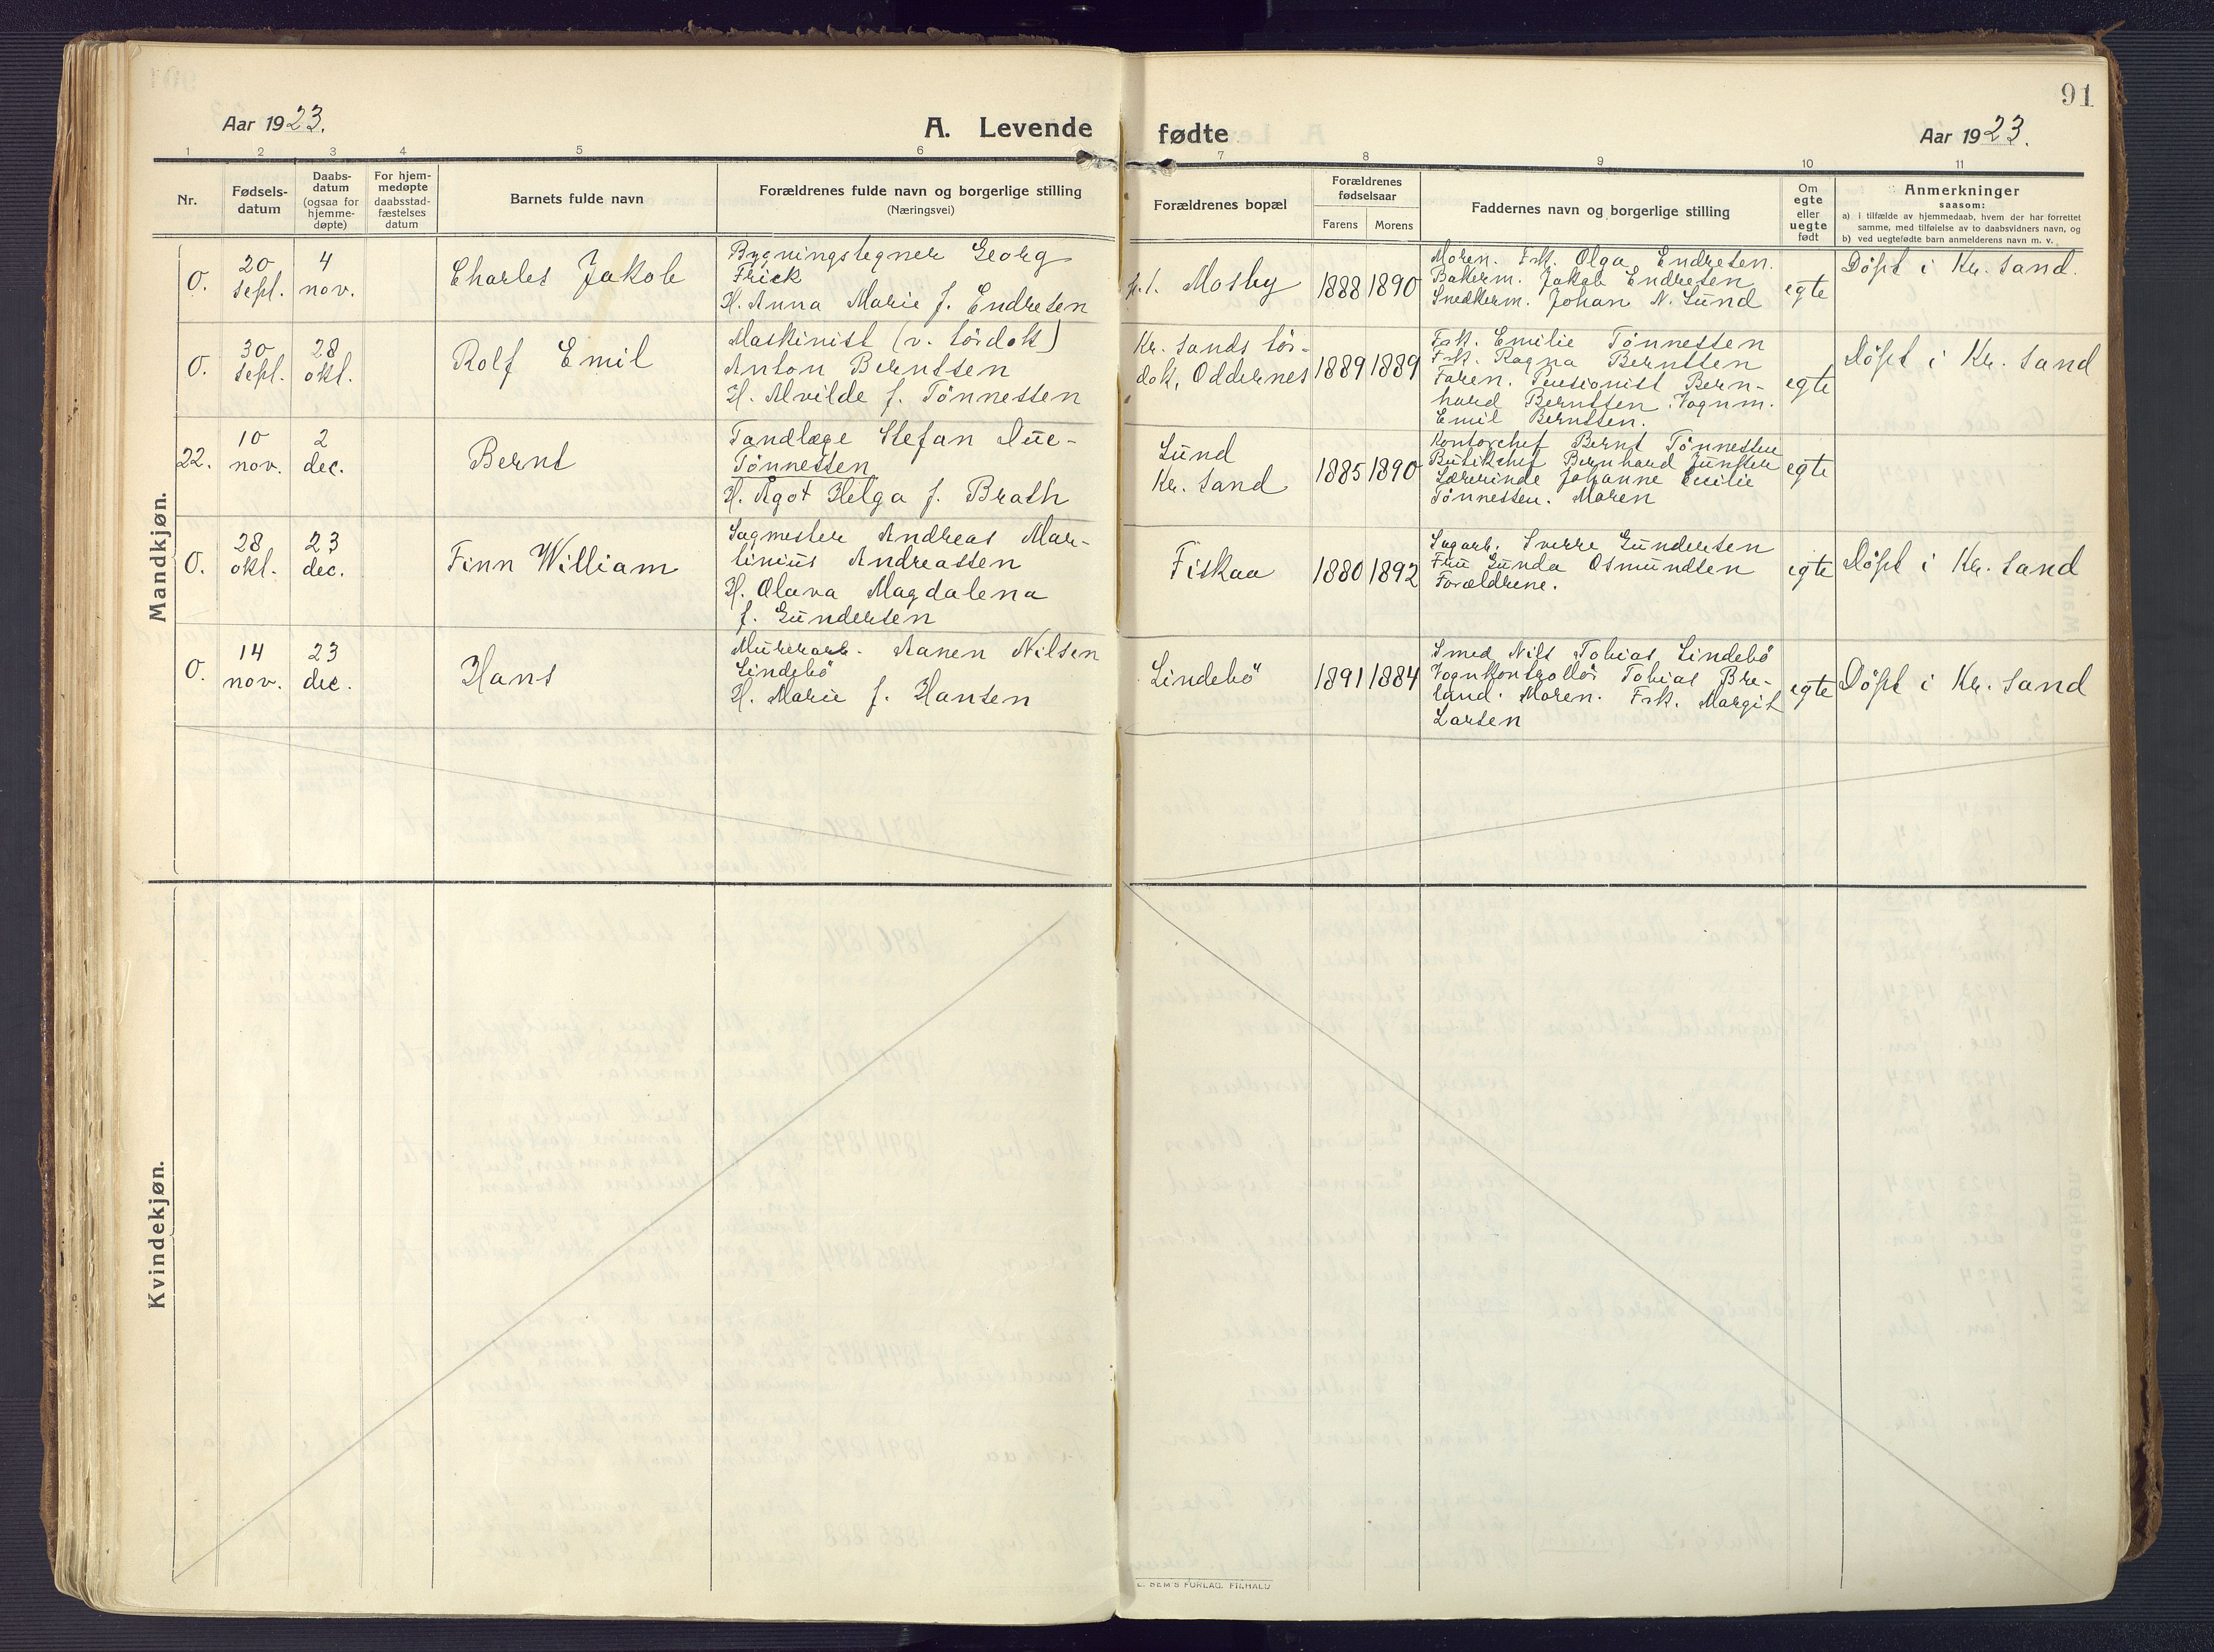 91
Aar 1923.
A. Levende fødte
Aar 1923.
1 2 3 4 5 6 7 8 9 10 11
Nr.
Fødsels-
datum
Daabs-
datum
(ogsaa for
hjemme-
døpte)
For hjem-
medøpte
daabsstad-
fæstelses
datum
Barnets fulde navn
Forældrenes fulde navn og borgerlige stilling
(Næringsvei)
Forældrenes bopæl
Forældrenes
fødselsaar
Farens Morens
Faddernes navn og borgerlige stilling
Om
egte
eller
uegte
født
Anmerkninger
saasom:
a) i tilfælde av hjemmedaab, hvem der har forrettet
samme, med tilføielse av to daabsvidners navn, og
b) ved uegtefødte barn anmelderens navn m. v.
Mandkjøn.
0.
20
sept.
4
nov.
Charles Jakob
Bygningstegner Georg
Frick
H. Anna Marie f. Endresen
p.t. Mosby
1888 1890
Moren. Frk. Olga Endresen.
Bakerm. Jakob Endresen
Snedkerm. Johan N. Lund
egte
Döpt i Kr. sand.
0.
30
sept.
28
okt.
Rolf Emil
Maskinist (v. tördok)
Anton Berntsen
H. Alvilde f. Tönnessen
Kr. sands tör-
dok, Oddernes
1889 1889
Frk. Emilie Tönnessen
Frk. Ragna Berntsen
Faren. Pensionist Bern-
hard Berntsen. Vognm.
Emil Berntsen.
egte
Döpt i Kr. sand
22.
10
nov.
2
dec.
Bernt
Tandlæge Stefan Due-
Tönnessen
H. Agot Helga f. Brath
Lund
Kr. sand
1885 1890
Kontorchef Bernt Tönnessen
Butikchef Bernhard
Lærerinde Johanne Cecilie
Tönnessen. Moren
egte
0.
28
okt.
23
dec.
Finn William
Sagmester Andreas Mar-
tinius Andreassen
H. Olava Magdalena
f. Gundersen
Fiskaa
1880 1892
Sagarb. Sverre Gundersen
Fru Gunda Osmundsen
Forældrene.
egte
Döpt i Kr. sand
0.
14
nov.
23
dec.
Hans
Murerarb. Aanen Nilsen
Lindebö
H. Marie f. Hansen
Lindebö
1891 1884
Smed Nils Tobias Lindebö
Vognkontrollör Tobias Bre-
land. Moren. Frk. Margit
Larsen
egte
Döpt i Kr. sand
Kvindekjøn.
E. SEM'S FORLAG, F.HALD